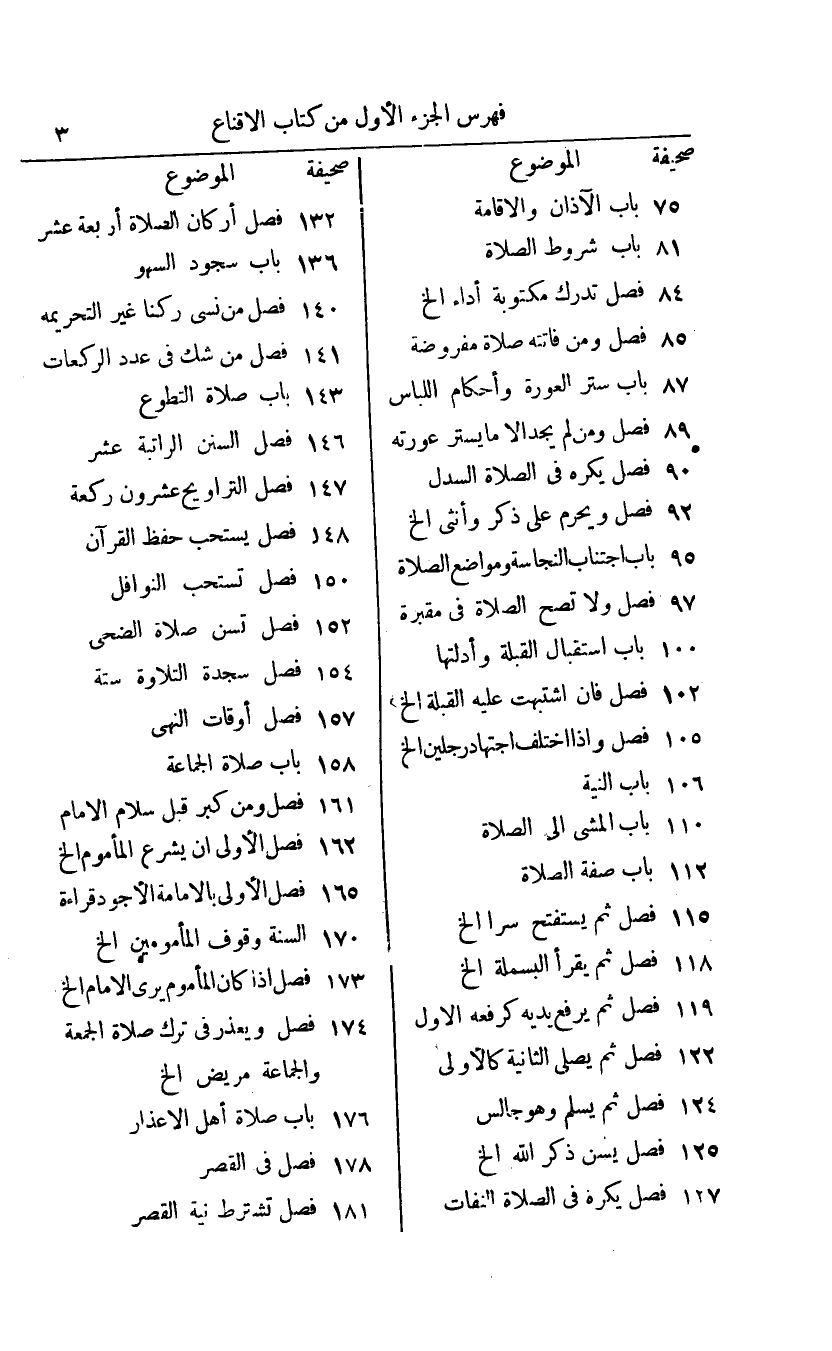 فهرس الجزء الأول من كتاب الاقناع ٣
صحيفة الموضوع
٧٥ باب الآذان والاقامة
٨١ باب شروط الصلاة
٨٤ فصل تدرك مكتوبة أداء الخ
٨٥ فصل ومن فاتته صلاة مفروضة
٨٧ باب ستر العورة وأحكام اللباس
٨٩ فصل ومن لم يجد الا ما يستر عورته
٩٠ فصل يكره فى الصلاة السدل
٩٢ فصل ويحرم على ذكر وأنثى الخ
٩٥ باب اجتناب النجاسة ومواضع الصلاة
٩٧ فصل ولا تصح الصلاة فى مقبرة
١٠٠ باب استقبال القبلة وأدلتها
١٠٢ فصل فان اشتبهت عليه القبلة الخ
١٠٥ فصل واذا اختلف اجتهاد رجلين الخ
١٠٦ باب النية
١١٠ باب المشى الى الصلاة
١١٢ باب صفة الصلاة
١١٥ فصل ثم يستفتح سرا الخ
١١٨ فصل ثم يقرأ البسملة الخ
١١٩ فصل ثم يرفع يديه كرفعه الاول
١٢٢ فصل ثم يصلى الثانية كالأولى
١٢٤ فصل ثم يسلم وهو جالس
١٢٥ فصل يسن ذكر الله الخ
١٢٧ فصل يكره فى الصلاة التفات
صحيفة الموضوع
١٣٢ فصل أركان الصلاة أربعة عشر
١٣٦ باب سجود السهو
١٤٠ فصل من نسى ركنا غير التحريمه
١٤١ فصل من شك فى عدد الركعات
١٤٣ باب صلاة التطوع
١٤٦ فصل السنن الراتبة عشر
١٤٧ فصل التراويح عشرون ركعة
١٤٨ فصل يستحب حفظ القرآن
١٥٠ فصل تستحب النوافل
١٥٢ فصل تسن صلاة الضحى
١٥٤ فصل سجدة التلاوة ستة
١٥٧ فصل أوقات النهى
١٥٨ باب صلاة الجماعة
١٦١ فصل ومن كبر قبل سلام الامام
١٦٢ فصل الأولى ان يشرع المأموم الخ
١٦٥ فصل الأولى بالامامة الأجود قراءة
١٧٠ السنة وقوف المأمومين الخ
١٧٣ فصل اذا كان المأموم يرى الامام الخ
١٧٤ فصل ويعذر فى ترك صلاة الجمعة
والجماعة مريض الخ
١٧٦ باب صلاة أهل الاعذار
١٧٨ فصل فى القصر
١٨١ فصل تشترط نية القصر